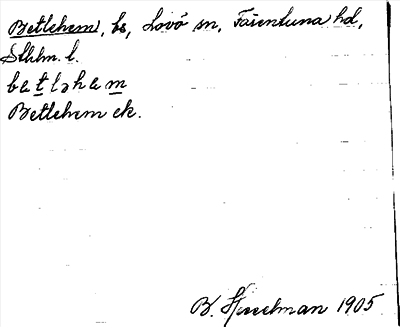 Betlehem, bs, Lovö sn, Färentuna hd,
Sthlm. l.
betləhem
Betlehem ek.
B. Hesselman 1905